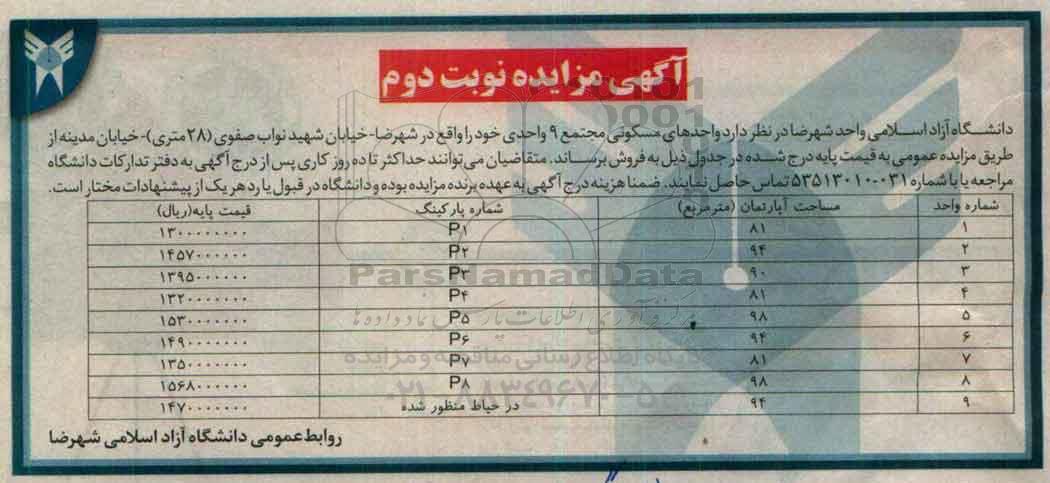 آگهی مزایده نوبت دوم
دانشگاه آزاد اسلامی واحد شهرضا در نظر دارد واحدهای مسکونی مجتمع ۹ واحدی خود را واقع در شهرضا- خیابان شهید نواب صفوی (۲۸متری)- خیابان مدینه از
طریق مزایده عمومی به قیمت پایه درج شده در جدول ذیل به فروش برساند. متقاضیان می‌توانند حداکثر تا ده روز کاری پس از درج آگهی به دفتر تدارکات دانشگاه
مراجعه یا با شماره ۰۳۱-۵۳۵۱۳۰۱۰ تماس حاصل نمایند. ضمنا هزینه درج آگهی به عهده برنده مزایده بوده و دانشگاه در قبول یا رد هر یک از پیشنهادات مختار است.
شماره واحد مساحت آپارتمان (مترمربع) شماره پارکینگ قیمت پایه(ریال)
۱ ۸۱ P۱ ۱۳۰۰۰۰۰۰۰۰
۲ ۹۴ P۲ ۱۴۵۷۰۰۰۰۰۰
۳ ۹۰ P۳ ۱۳۹۵۰۰۰۰۰۰
۴ ۸۱ P۴ ۱۳۲۰۰۰۰۰۰۰
۵ ۹۸ P۵ ۱۵۳۰۰۰۰۰۰۰
۶ ۹۴ P۶ ۱۴۹۰۰۰۰۰۰۰
۷ ۸۱ P۷ ۱۳۵۰۰۰۰۰۰۰
۸ ۹۸ P۸ ۱۵۶۸۰۰۰۰۰۰
۹ ۹۴ در حیاط منظور شده ۱۴۷۰۰۰۰۰۰۰
ParsNamadData
روابط عمومی دانشگاه آزاد اسلامی شهرضا